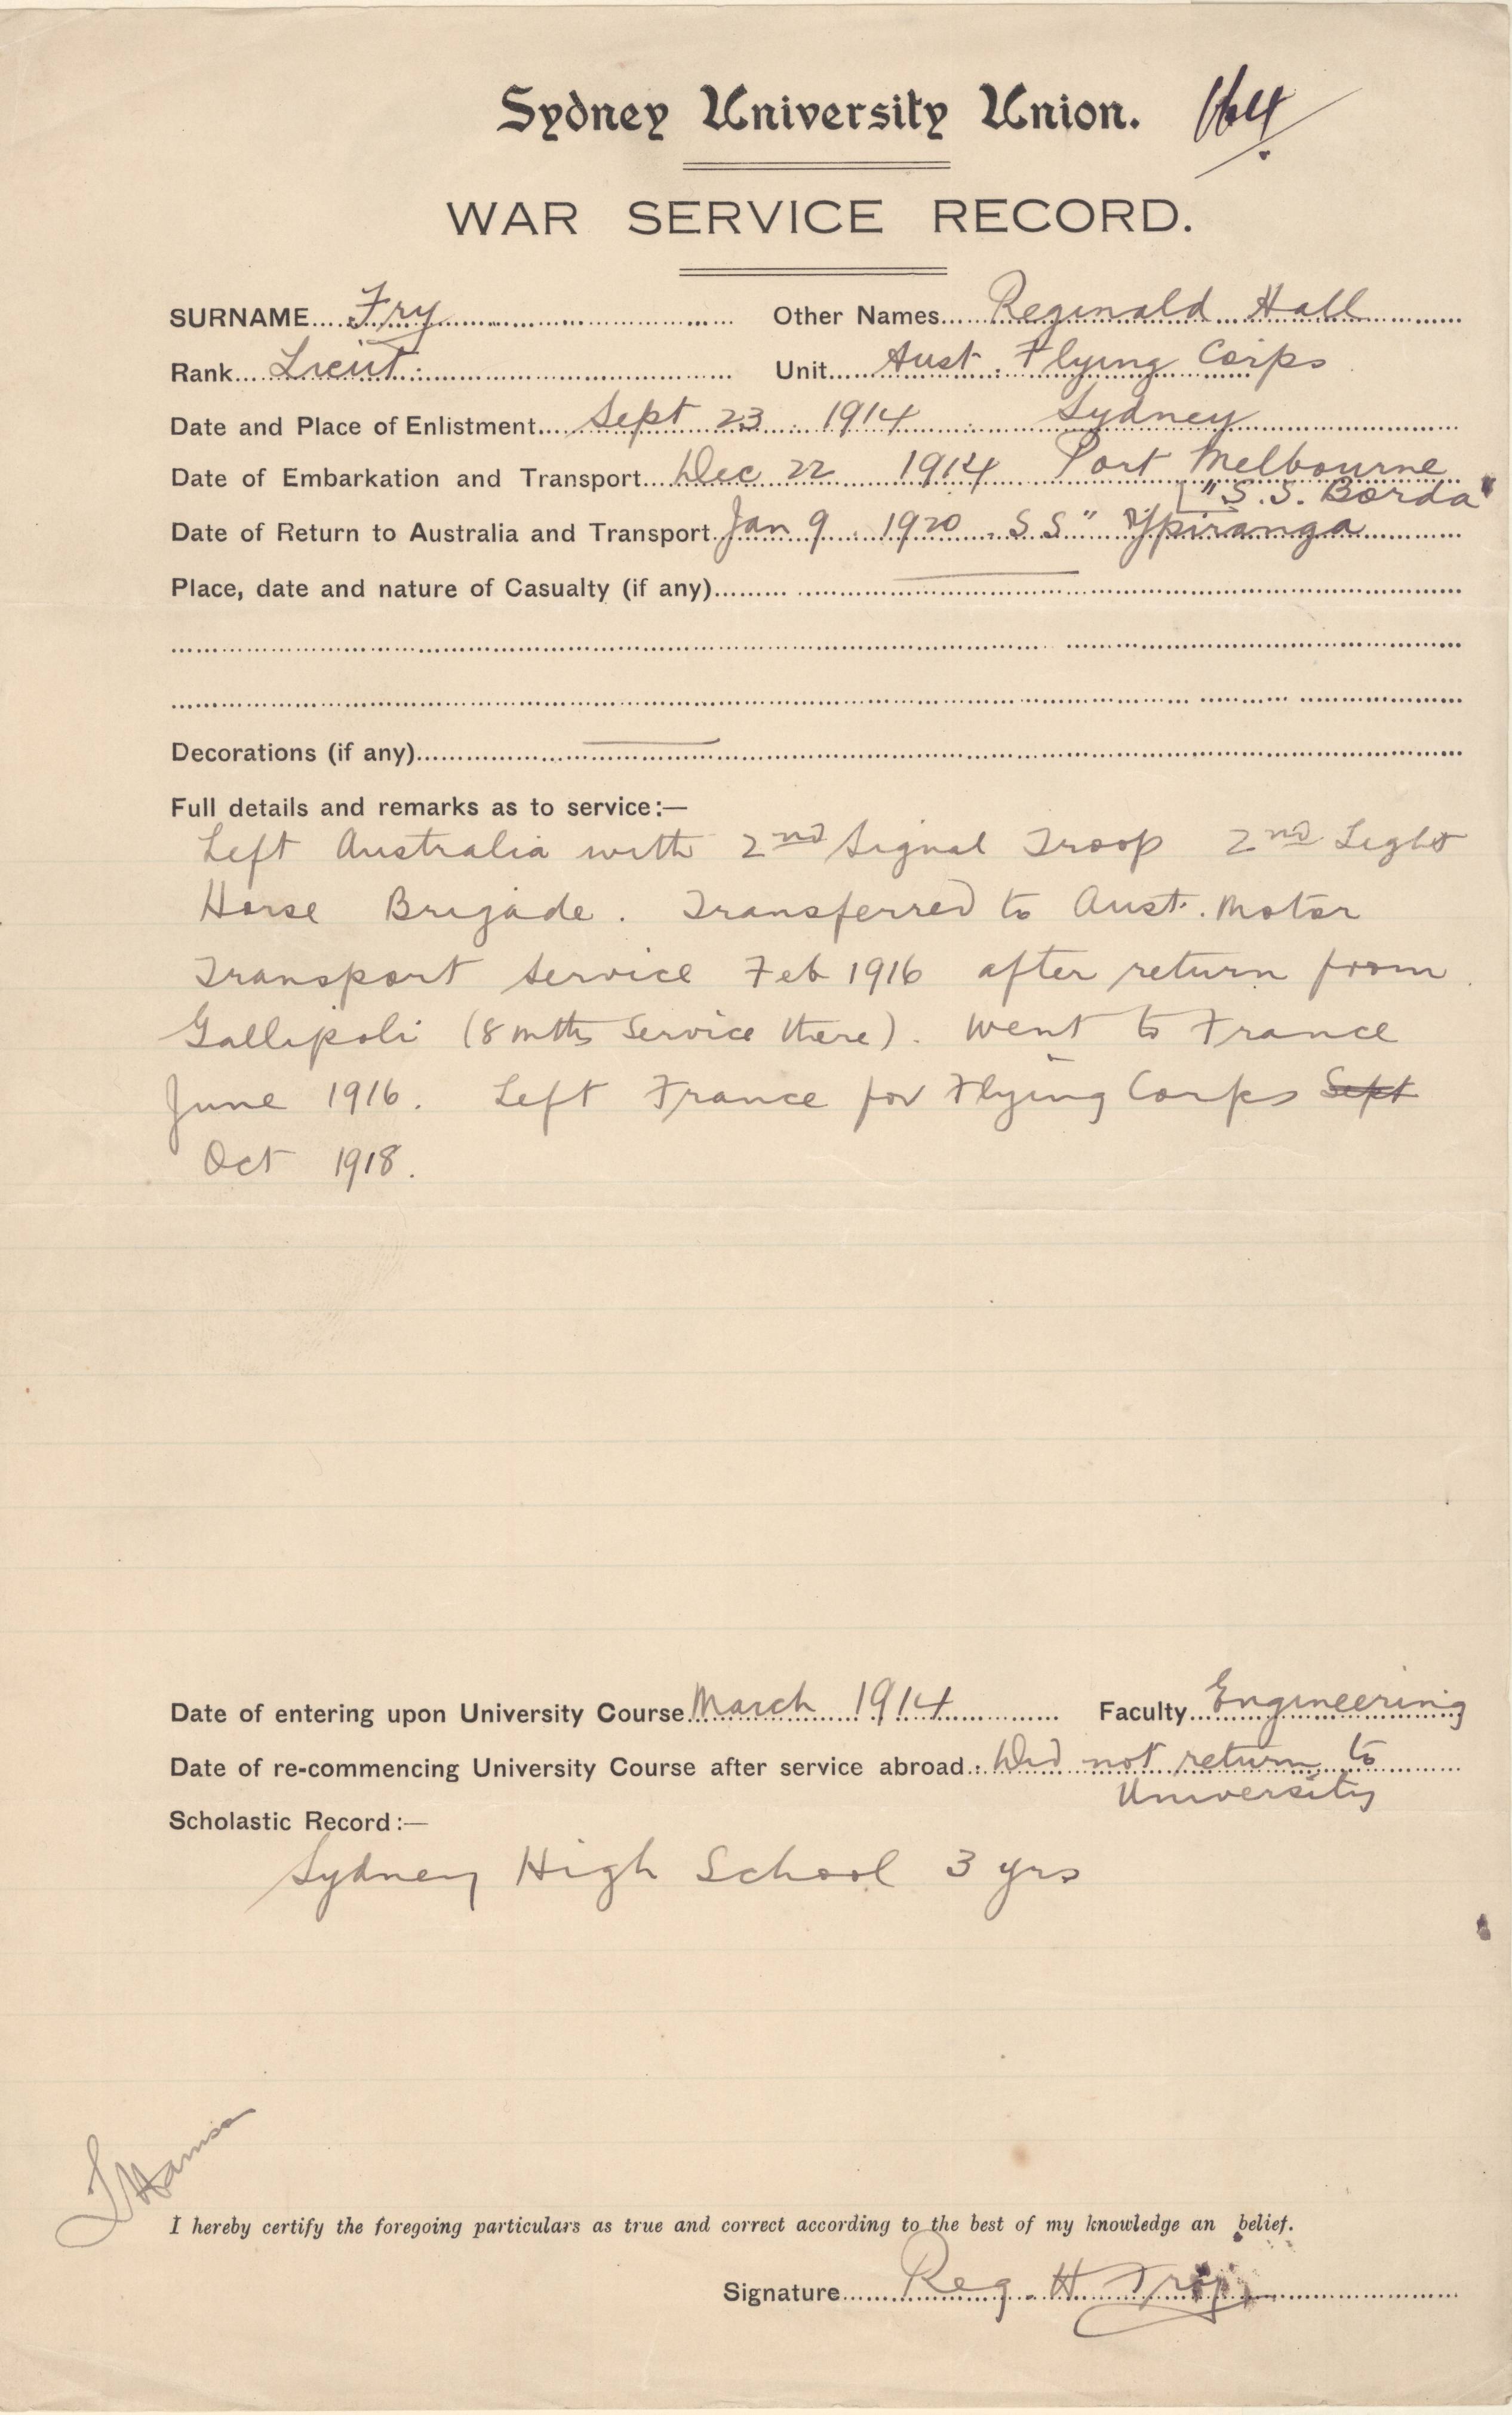 Sydney University Union.
WAR SERVICE RECORD.
SURNAME Fry Other Names Reginald Hall
Rank Lieut. Unit Aust. Flying Corps
Date and Place of Enlistment Sept 23. 1914 Sydney
Date of Embarkation and Transport Dec 22 1914 Port Melbourne
"S.S. Borda"
Date of Return to Australia and Transport Jan 9. 1920. SS "Ypiranga
Place, date and nature of Casualty (if any)
Decorations (if any)
Full details and remarks as to service:—
Left Australia with 2nd Signal Troop 2nd Light
Horse Brigade. Transferred to Aust. Motor
Transport Service Feb 1916 after return from
Gallipoli (8 mths Service there). Went to France
June 1916. Left France for Flying Corps Sept
Oct 1918.
Date of entering upon University Course March 1914 Faculty Engineering
Date of re-commencing University Course after service abroad Did not return to
University
Scholastic Record:—
Sydney High School 3 yrs
I hereby certify the foregoing particulars as true and correct according to the best of my knowledge an belief.
Signature Reg. H. Fry